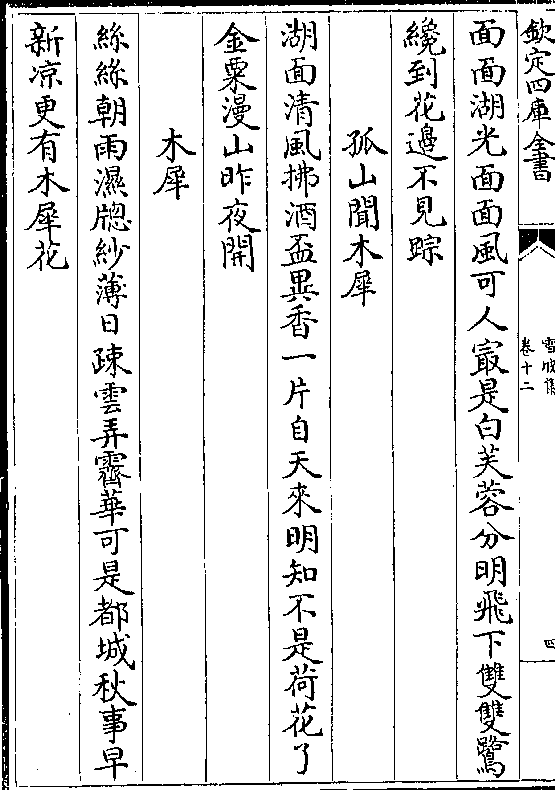 欽定四庫全書
雪坡集
卷十二
四
面面湖光面面風可人㝡是白芙蓉分明飛下雙雙鷺
纔到花邊不見踪
孤山聞木犀
湖面清風拂酒盃異香一片自天來明知不是荷花了
金粟漫山昨夜開
木犀
絲絲朝雨濕牕紗薄日疎雲弄霽華可是都城秋事早
新凉更有木犀花